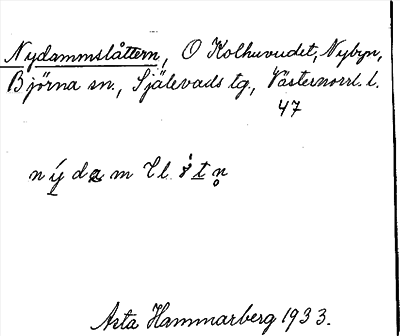 Nydammslåttern, O Kolhuvudet, Nybyn,
Björna sn., Själevads tg., Västernorrl. l.
47
Asta Hammarberg 1933.